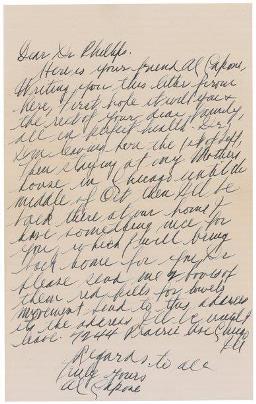 Dear Dr Phillips.
Here is your friend Al Capone,
Writing you this letter from
here, I first hope it will you &
the rest of your dear family,
all in perfect health. Dr I
am leaving here the 1st of Sept,
then staying at my Mothers
house in Chicago until the
middle of Oct, then I'll be
back there at our home, I
have something nice for
you, which I will bring
back home for you, Dr
Please send me 2 boxes of
them red pills for bowels
movement send to this address
its the address I'll be until I
leave. 7244 Prairie Ave Chicago
Ill
Regards to all
Truly Yours
Al Capone